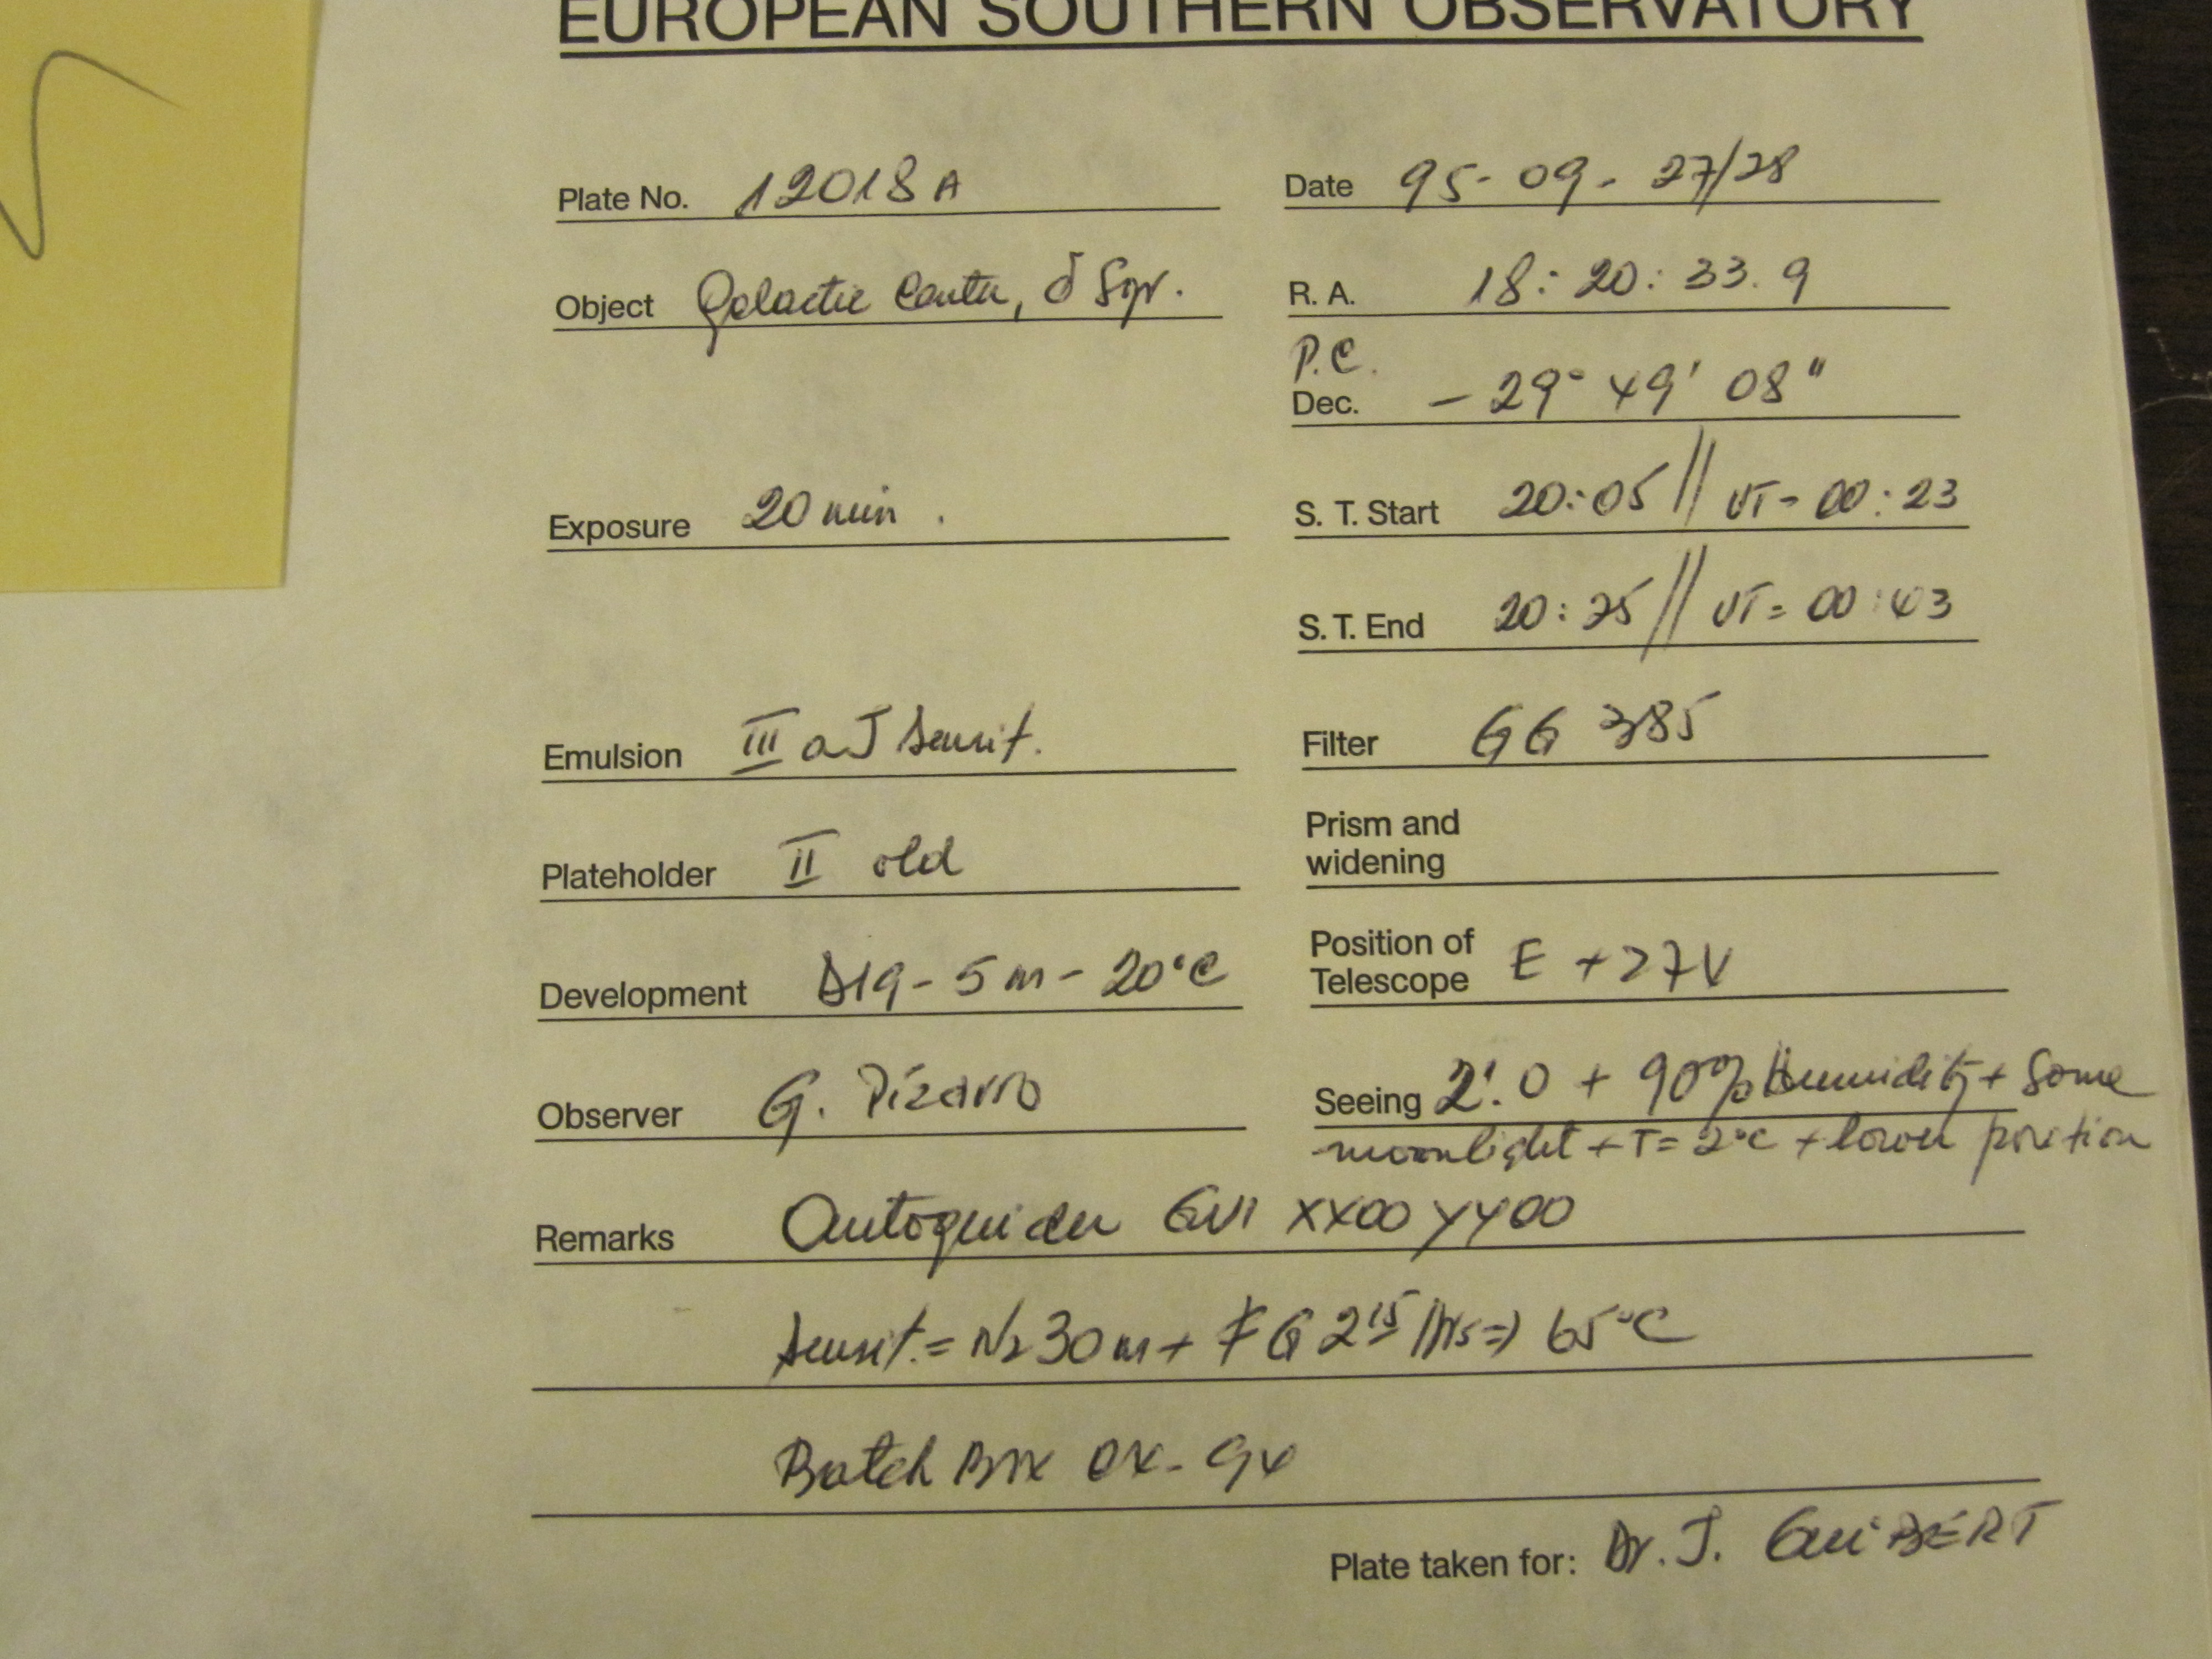 EUROPEAN SOUTHERN OBSERVATORY
Plate No. 12018 A
Date 95-09-27/28
Object Galactic Center, δ Sgr.
R. A. 18: 20: 33.9
P.C.
Dec. - 29° 49' 08"
Exposure 20 min.
S. T. Start 20:05 // UT- 00:23
S. T. End 20:25 // UT= 00:43
Emulsion III a J Sensit.
Filter GG 385
Plateholder II old
Prism and
widening
Development D19 - 5 m - 20°C
Position of
Telescope E +27V
Observer G. Pizarro
Seeing 2".0 + 90% Humidity + Some
moonlight + T= 2°C + lower position
Remarks Autoguider XX00 YY00
Sensit.= N2 30 m + FG 2 15 Hrs => 65°C
Batch Box
Plate taken for: Dr. J. GUIBERT